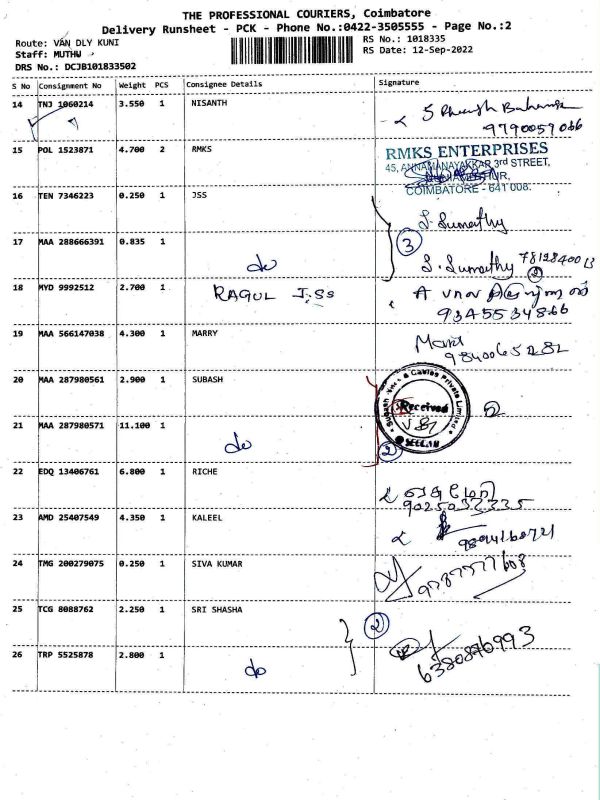 THE PROFESSIONAL COURIERS, Coimbatore
Delivery Runsheet - PCK - Phone No.:0422-3505555 - Page No.:2
Route: VAN DLY KUNI
RS No.: 1018335
Staff: MUTHU
RS Date: 12-Sep-2022
DRS No.: DCJB101833502
S No Consignment No Weight PCS Consignee Details Signature
14 TNJ 1060214 3.550 1 NISANTH
9790059066
15 POL 1523871 4.700 2 RMKS
RMKS ENTERPRISES
45, ANNAMANAYAKKAR 3rd STREET,
COIMBATORE - 641 008.
16 TEN 7346223 0.250 1 JSS
S. Sumathy
3
17 MAA 288666391 0.835 1
do
S. Sumathy
2
18 MYD 9992512 2.700 1 RAGUL JSS
9345534866
19 MAA 566147038 4.300 1 MARRY
9840065282
20 MAA 287980561 2.900 1 SUBASH
Received
2
21 MAA 287980571 11.100 1
do
2
22 EDQ 13406761 6.800 1 RICHE
23 AMD 25407549 4.350 1 KALEEL
24 TMG 200279075 0.250 1 SIVA KUMAR
25 TCG 8088762 2.250 1 SRI SHASHA
2
26 TRP 5525878 2.800 1
do
6380876993